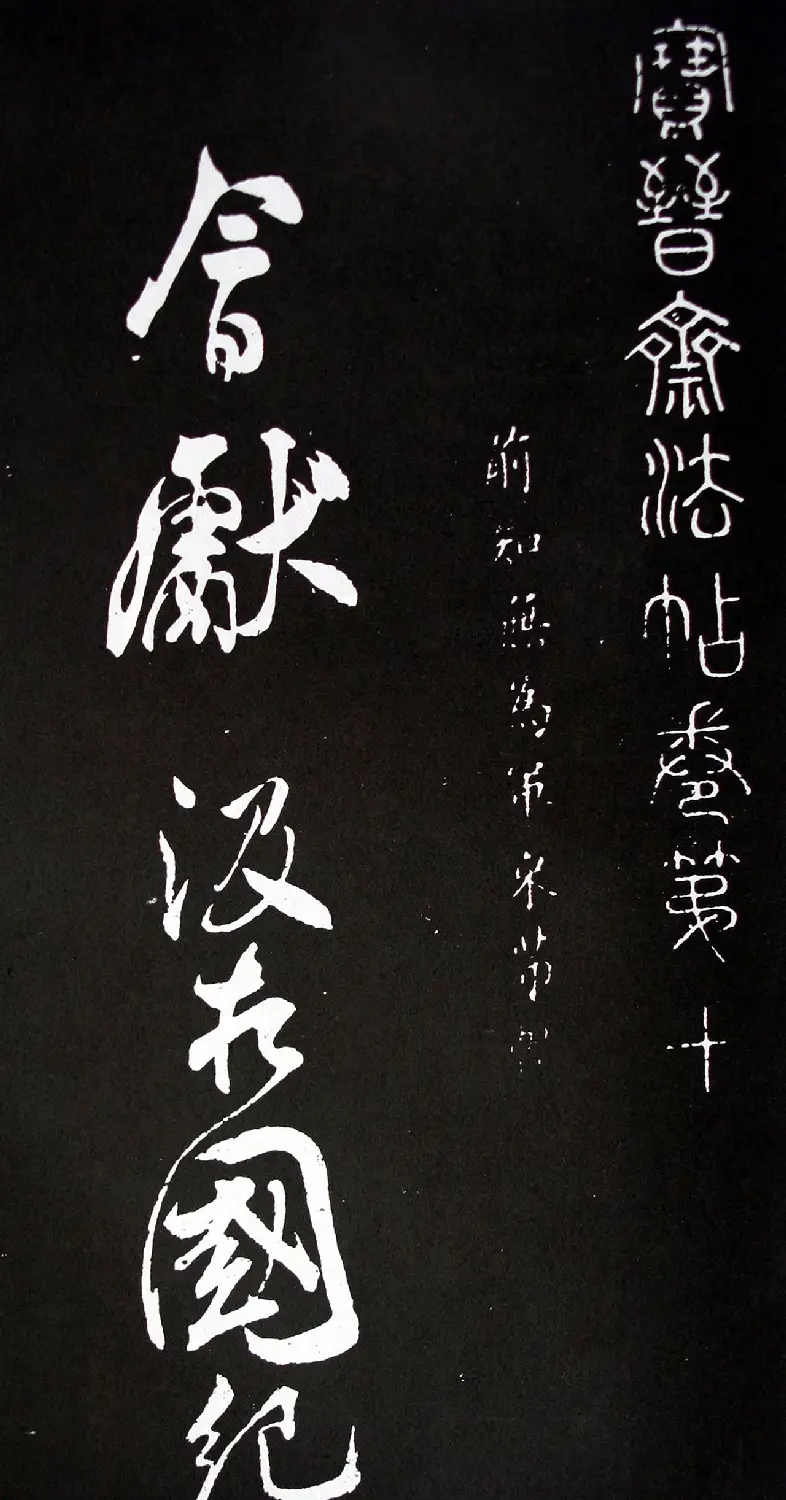 寶晉齋法帖卷第十
前知無為軍米芾
會獻汲相國紀